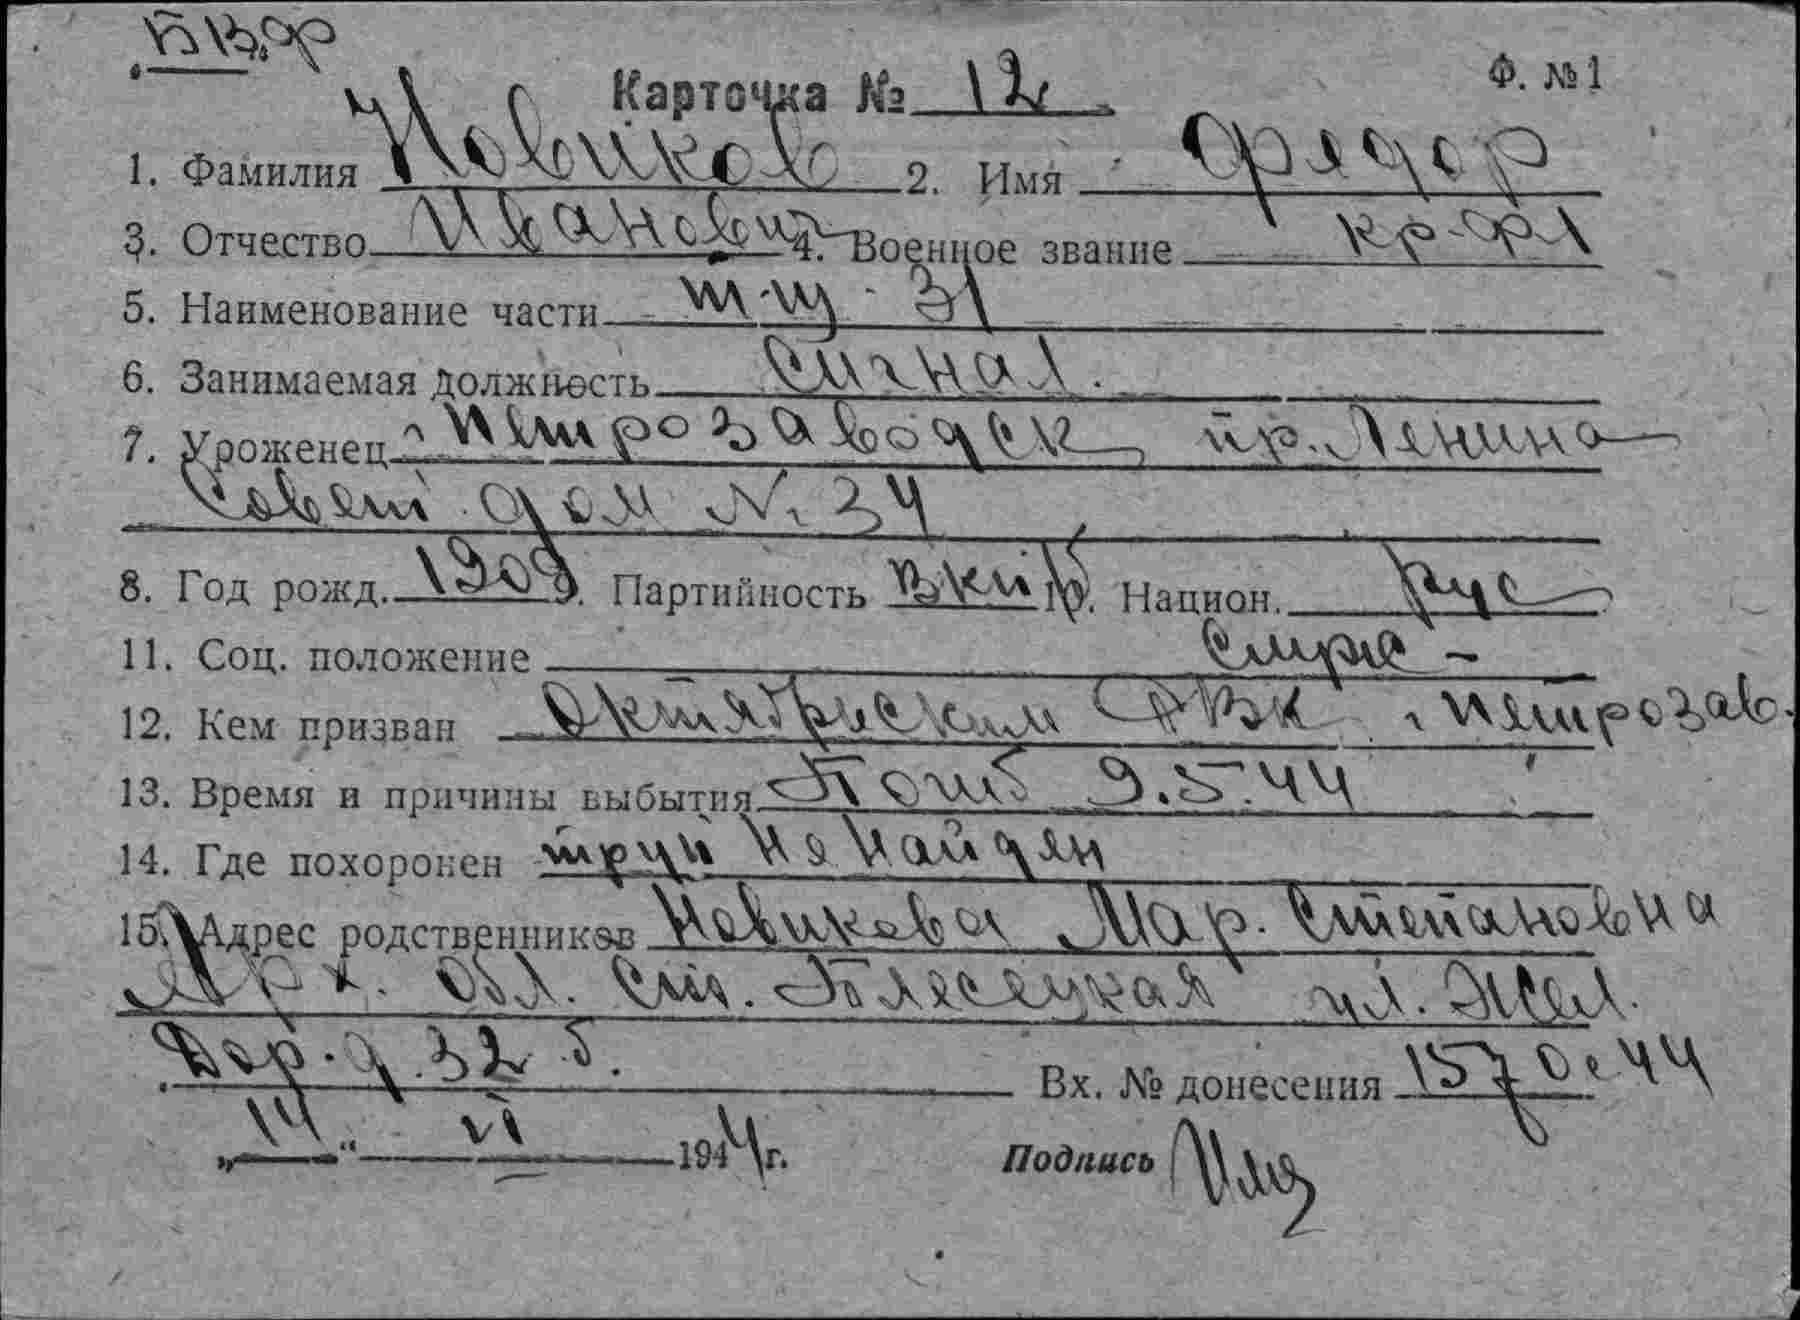 Карточка № 12 Ф. №1
1. Фамилия Новиков 2. Имя Федор
3. Отчество Иванович 4. Военное звание кр-фл
5. Наименование части тщ-
6. Занимаемая должность Сигнал.
7. Уроженец г. Петрозаводск, пр. Ленина
дом № 34
8. Год рожд. 1909 9. Партийность ВКПб 10. Национ. рус
11. Соц. положение служ-
12. Кем призван Октябрьским РВК г. Петрозав.
13. Время и причины выбытия Погиб 9.5.44
14. Где похоронен труп не найден
15. Адрес родственников Новикова Мар. Степановна
Арх. обл. ст. Плесецкая ул. Жел.
Дор. д. 32
Вх. № донесения 44
„14“ VI 1944 г. Подпись